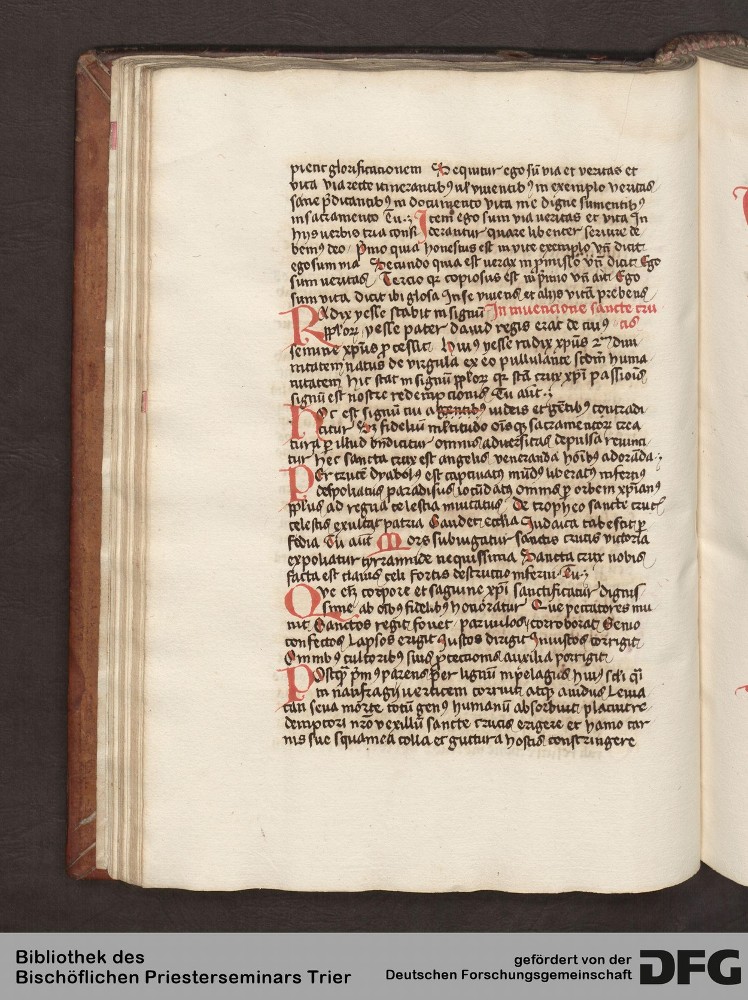 pient glorificationem Sequitur ego sū via et veritas et
vita via recte itinerantibꝰ ul' viuentibꝰ in exemplo veritas
sane p̄dicantibꝰ in documento vita me digne sumentibꝰ
in sacramento Tu Item ego sum via veritas et vita In
hijs verbis tria considerantur quare libenter seruire de
bemꝰ deo pmo quia honestus est in vite exemplo vn̄ dicit
ego sum via Secundo quia est verax in pmisso vn̄ dicit Ego
sum veritas Tercio qr copiosus est in pmio vn̄ ait Ego
sum vita dicit ibi glosa In se viuens et alijs vitā prebens
Radix yesse stabit in signū In invencione sancte cru
pplor yesse pater dauid regis erat de ciuꝰ cis
semine xpūs pcessit huiꝰ yesse radix xpūs
nitatem natus de virgula ex eo pullulante scdm huma
nitatem hic stat in signū pplor qr stā crux xpi passiois
signū est nostre redempcionis Tu aut
Hoc est signū cui a gentibꝰ iudeis et gētibꝰ contradi
citur Sz fidelium multitudo oīsqz sacramentor crea
tura p illud bn̄dicitur omnis aduersitas depulsa reiunci
tur hec sancta crux est angelis veneranda hoībꝰ adorāda
Per crucē dyabolꝰ est captiuatꝰ mūdꝰ liberatꝰ infernꝰ
despoliatus paradisus iocūdatꝰ omnis p orbem xpianꝰ
pplus ad regna celestia inuitatus De tropheo sancte crucis
celestis exultat patria Gaudet ecclia Iudaica tabescit p
fidia Tu aut Mors subiugatur sanctis crucis victoria
expoliatur tyrannide nequissima Sancta crux nobis
facta est clauis celi fortis destructio inferni Tu
Que em corpore et sagwine xpi sanctificatur dignis
sime ab oībꝰ fidelibꝰ honoratur Que peccatores mu
nit Sanctos regit fouet paruulos corroborat Senio
confectos Lapsos erigit Iustos dirigit Iniustos corrigit
Omnibꝰ cultoribꝰ suis pteccionis auxilia porrigit
Postqm pmꝰ parens per lignū in pelagus huiꝰ scli qsi
in naufragij verticem corruit atqz auidus Leuia
tan seua morte totū genꝰ humanū absorbuit placuit re
demptori nr̄o vexillū sancte crucis erigere et hamo car
nis sue squamea colla et guttura hostis constringere
Bibliothek des
Bischöflichen Priesterseminars Trier
gefördert von der
Deutschen Forschungsgemeinschaft
DFG